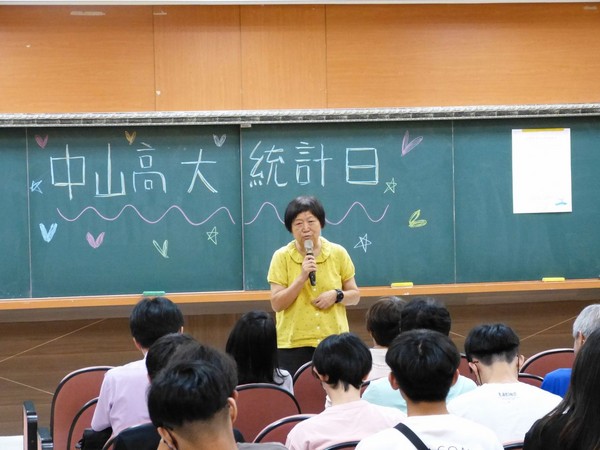 中山高大 統計日